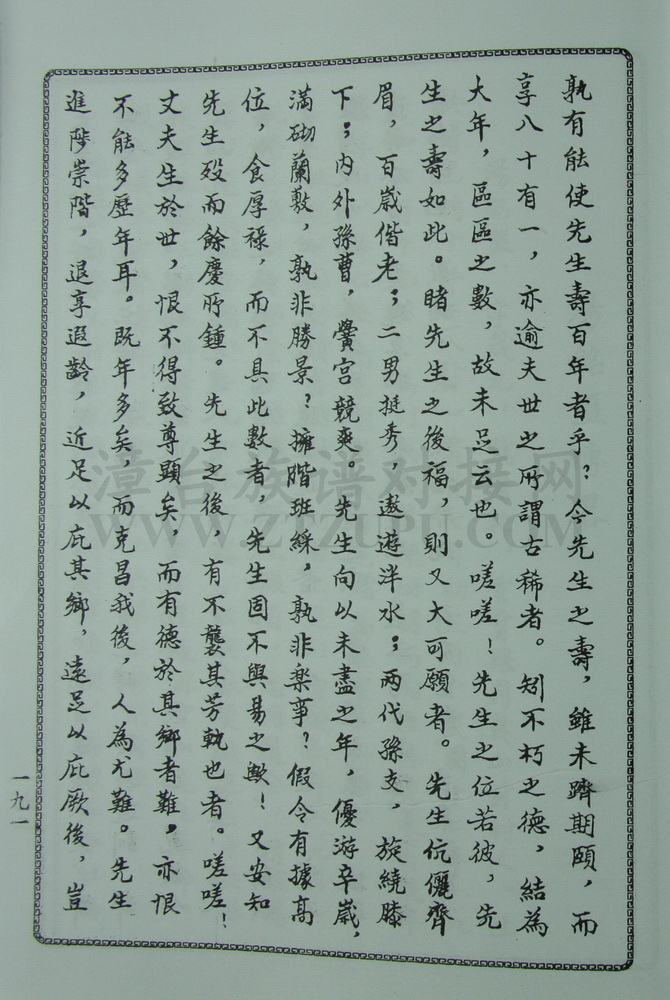 孰有能使先生壽百年者乎？今先生之壽，雖未躋期頤，而
享八十有一，亦逾夫世之所謂古稀者。矧不朽之德，結為
大年，區區之數，故未足云也。嗟嗟！先生之位若彼，先
生之壽如此。睹先生之後福，則又大可願者。先生伉儷齊
眉，百歲偕老；二男挺秀，遨遊泮水；兩代孫支，旋繞膝
下；內外孫曹，黌宮競爽。先生向以未盡之年，優游卒歲，
滿砌蘭敷，孰非勝景？擁階班綵，孰非樂事？假令有據高
位，食厚祿，而不具此數者，先生固不與易之歟！又安知
先生歿而餘慶所鍾。先生之後，有不襲其芳軌也者。嗟嗟！
丈夫生於世，恨不得致尊顯矣，而有德於其鄉者難，亦恨
不能多歷年耳。既年多矣，而克昌我後，人為尤難。先生
進陟崇階，退享遐齡，近足以庇其鄉，遠足以庇厥後，豈
一九一
漳台族谱对接网
WWW.ZTZUPU.COM